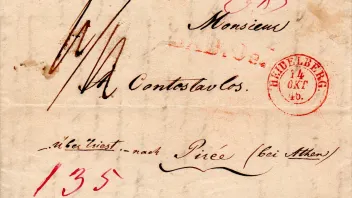 Monsieur
A. Contostavlos.
HEIDELBERG
14
OKT
45.
über Triest – nach Pirée (bei Athen)
135